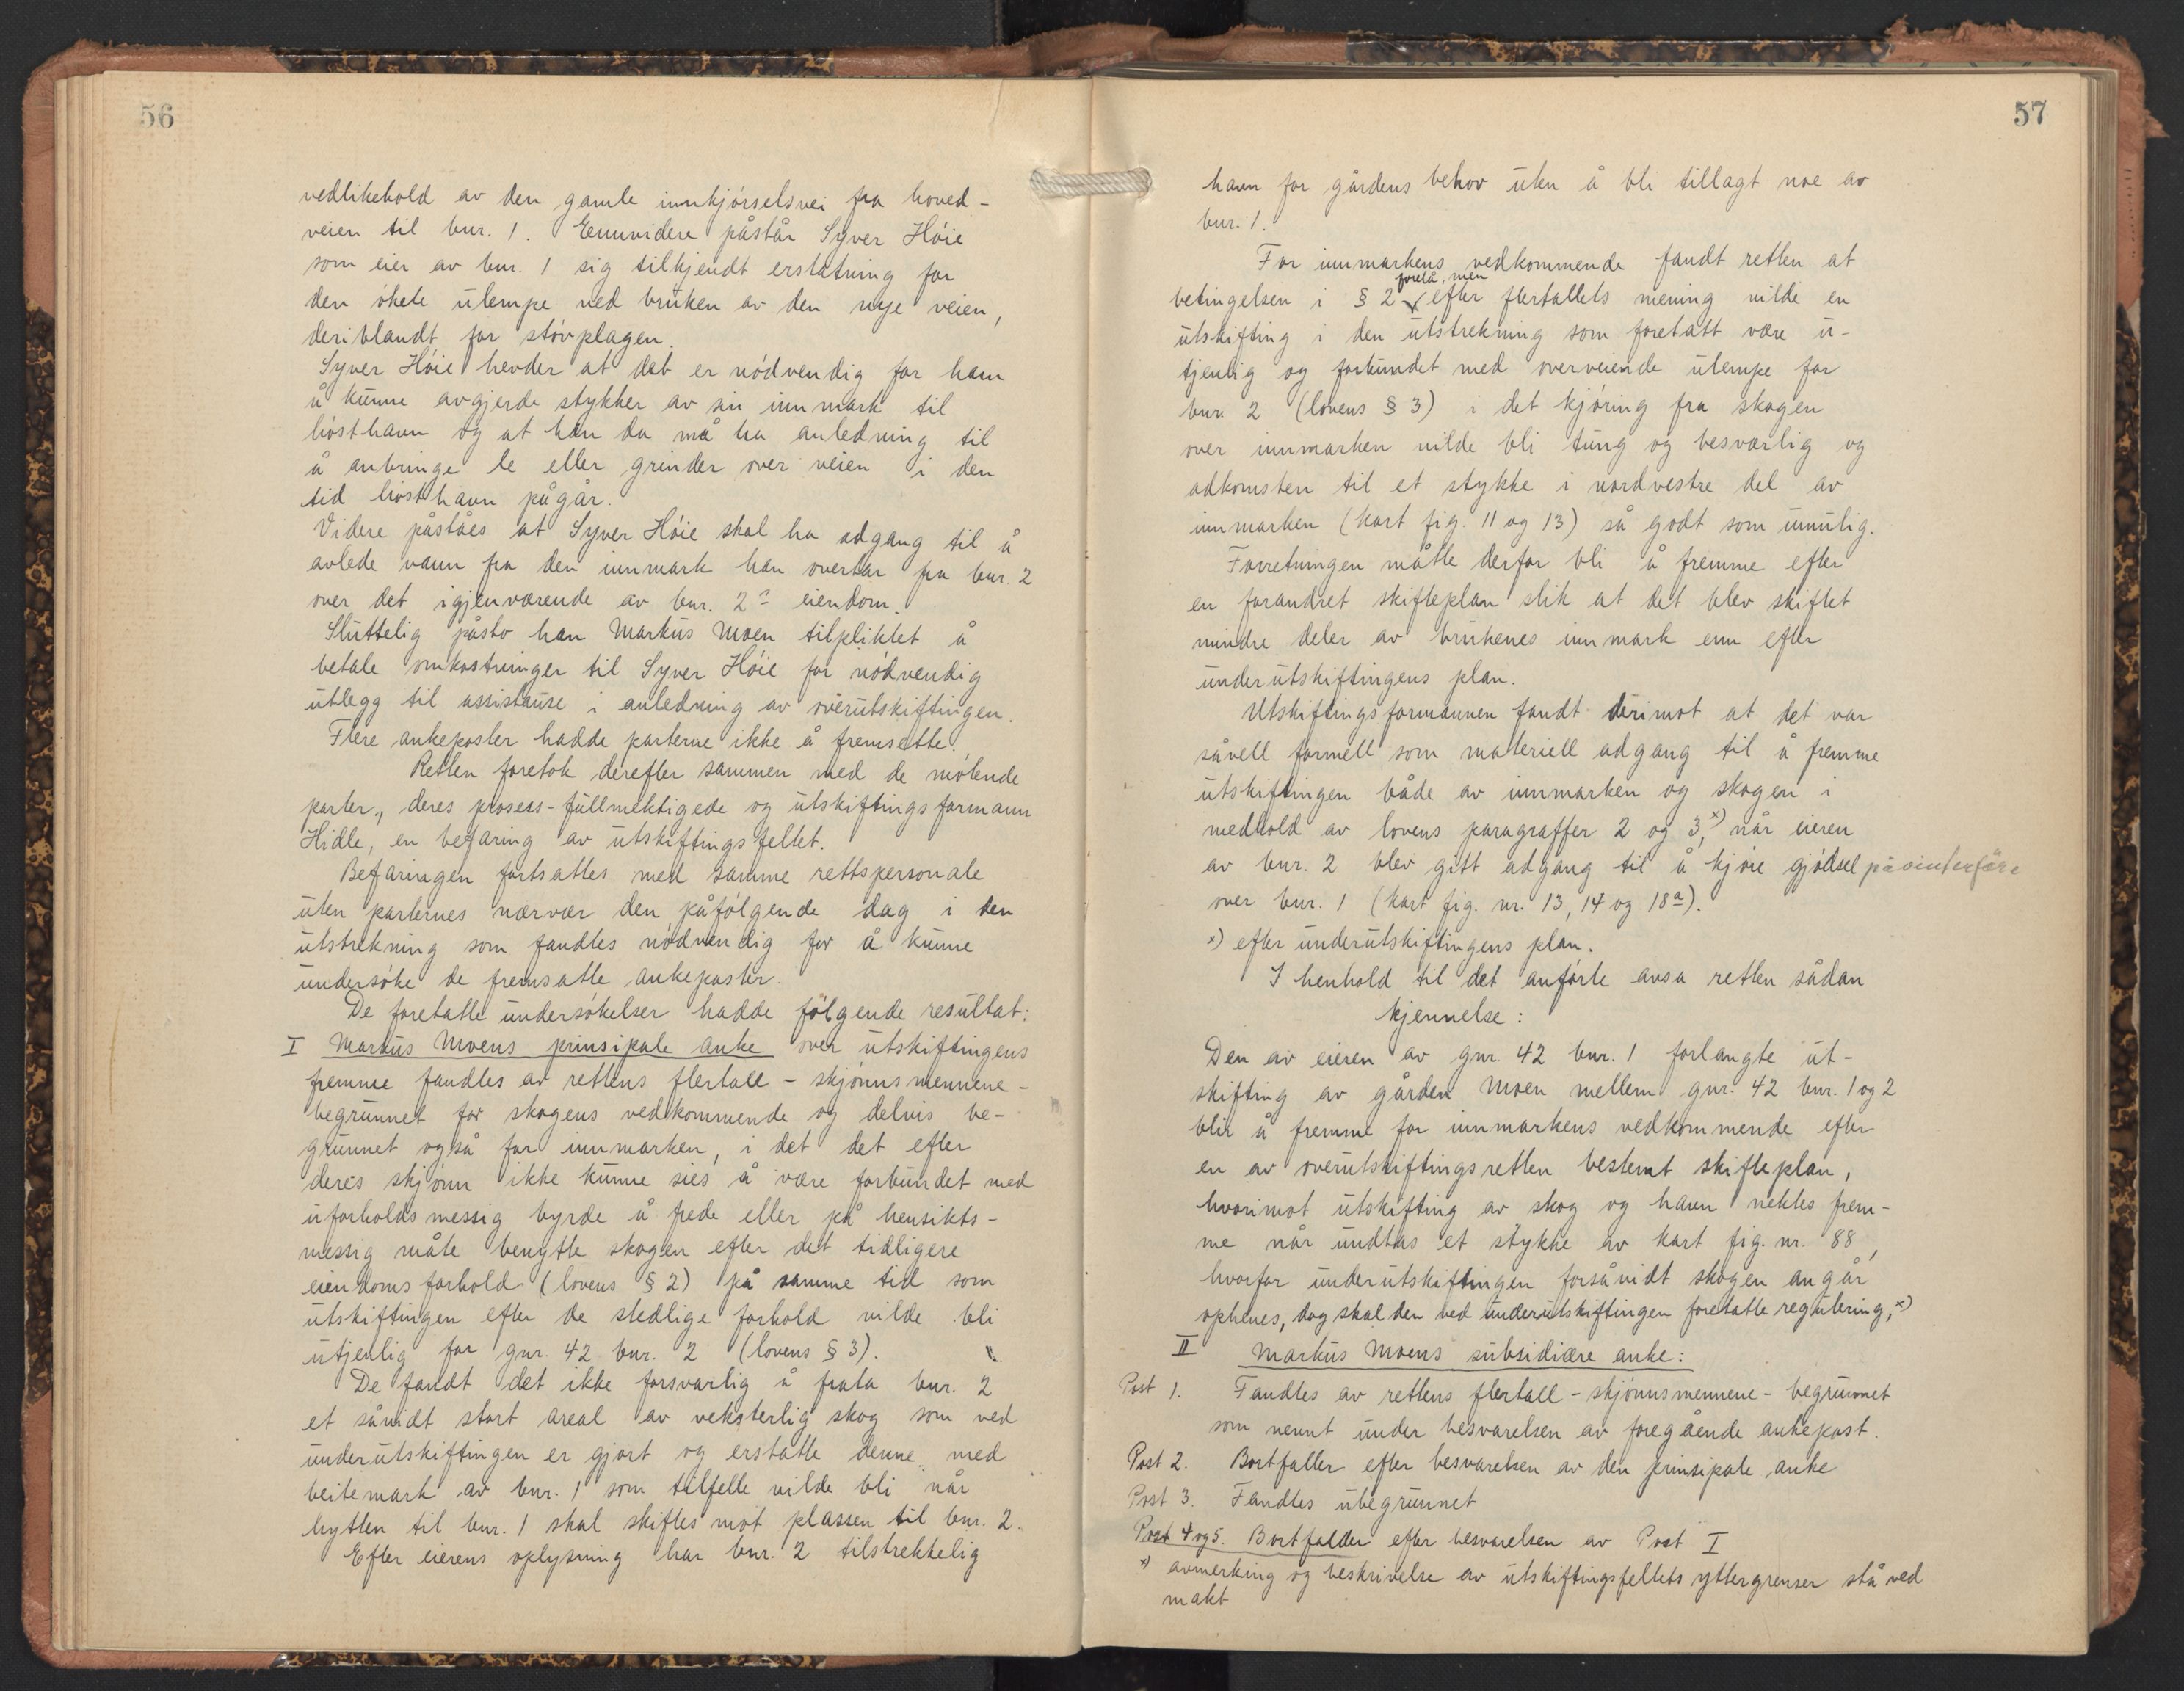 56
vedlikehold av den gamle innkjørselsvei fra hoved-
veien til bnr. 1. Ennvidere påstår Syver Høie
som eier av bnr. 1 sig tilkjendt erstatning for
den økete ulempe ved bruken av den nye veien,
deriblandt for støvplagen.
Syver Høie hevder at det er nødvendig for ham
å kunne avgjerde stykker av sin innmark til
høsthavn og at han da må ha anledning til
å anbringe le eller grinder over veien i den
tid høsthavn pågår.
Videre påståes at Syver Høie skal ha adgang til å
avlede vann fra den innmark han overtar fra bnr. 2
over det igjenværende av bnr. 2s eiendom.
Sluttelig påsto han Markus Moen tilpliktet å
betale omkostninger til Syver Høie for nødvendig
utlegg til assistanse i anledning av overutskiftingen.
Flere ankeposter hadde parterne ikke å fremsette.
Retten foretok derefter sammen med de møtende
parter, deres prosess-fullmektigede og utskiftingsformann
Hidle, en befaring av utskiftingsfeltet.
Befaringen fortsattes med samme rettspersonale
uten parternes nærvær den påfølgende dag i den
utstrekning som fandtes nødvendig for å kunne
undersøke de fremsatte ankeposter.
De foretatte undersøkelser hadde følgende resultat:
I Markus Moens prinsipale anke over utskiftingens
fremme fandtes av rettens flertall - skjønnsmennene -
begrunnet for skogens vedkommende og delvis be-
grunnet også for innmarken, i det det efter
deres skjønn ikke kunne sies å være forbundet med
uforholdsmessig byrde å frede eller på hensikts-
messig måte benytte skogen efter det tidligere
eiendomsforhold (lovens § 2) på samme tid som
utskiftingen efter de stedlige forhold vilde bli
utjenlig for gnr. 42 bnr. 2 (lovens § 3).
De fandt det ikke forsvarlig å frata bnr. 2
et såvidt stort areal av veksterlig skog som ved
underutskiftingen er gjort og erstatte denne med
beitemark av bnr. 1 som tilfelle vilde bli når
hytten til bnr. 1 skal skiftes mot plassen til bnr. 2.
Efter eierens oplysning har bnr. 2 tilstrekkelig
57
havn for gårdens behov uten å bli tillagt noe av
bnr. 1.
For innmarkens vedkommende fandt retten at
forelå, men
betingelsen i § 2 efter flertallets mening vilde en
utskifting i den utstrekning som foretatt være u-
tjenlig og forbundet med overveiende ulempe for
bnr. 2 (lovens § 3) i det kjøring fra skogen
over innmarken vilde bli tung og besværlig og
adkomsten til et stykke i nordvestre del av
innmarken (kart fig. 11 og 13) så godt som umulig.
Forretningen måtte derfor bli å fremme efter
en forandret skifteplan slik at det blev skiftet
mindre deler av brukenes innmark enn efter
underutskiftingens plan.
Utskiftingsformannen fandt derimot at det var
såvell formell som materiell adgang til å fremme
utskiftingen både av innmarken og skogen i
medhold av lovens paragraffer 2 og 3,x) når eieren
av bnr. 2 blev gitt adgang til å kjøre gjødsel på vinterføre
over bnr. 1 (kart fig. nr. 13, 14 og 18a).
x) efter underutskiftingens plan.
I henhold til det anførte avsa retten sådan
kjennelse:
Den av eieren av gnr. 42 bnr. 1 forlangte ut-
skifting av gården Moen mellem gnr. 42 bnr. 1 og 2
blir å fremme for innmarkens vedkommende efter
en av overutskiftingsretten bestemt skifteplan,
hvorimot utskifting av skog og havn nektes frem-
me når undtas et stykke av kart fig. nr. 88,
hvorfor underutskiftingen forsåvidt skogen angår
opheves, dog skal den ved underutskiftingen foretatte regulering,x)
II Markus Moens subsidiære anke:
Post 1. Fandtes av rettens flertall - skjønnsmennene - begrunnet
som nevnt under besvarelsen av foregående ankepost.
Post 2. Bortfaller efter besvarelsen av den prinsipale anke
Post 3. Fandtes ubegrunnet
Post 4 og 5. Bortfalder efter besvarelsen av Post I
x) avmerking og beskrivelse av utskiftingsfeltets yttergrenser stå ved
makt